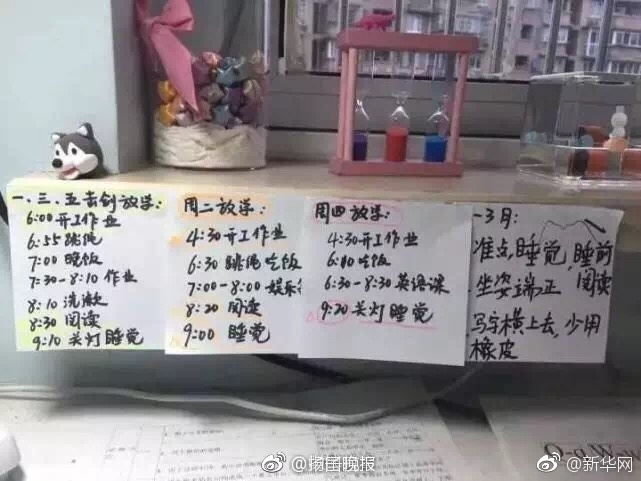 一、三、五击剑放学:
6:00 开工作业
6:55 跳绳
7:00 晚饭
7:30-8:10 作业
8:10 洗漱
8:30 阅读
9:10 关灯睡觉
周二放学:
4:30 开工作业
6:30 跳绳吃饭
7:00-8:00 娱乐
8:20 阅读
9:00 睡觉
周四放学:
4:30 开工作业
6:10 吃饭
6:30-8:30 英语课
9:20 关灯睡觉
一3月:
准点睡觉,睡前阅读
坐姿端正
写字横上去,少用
橡皮
@扬子晚报
@新华网